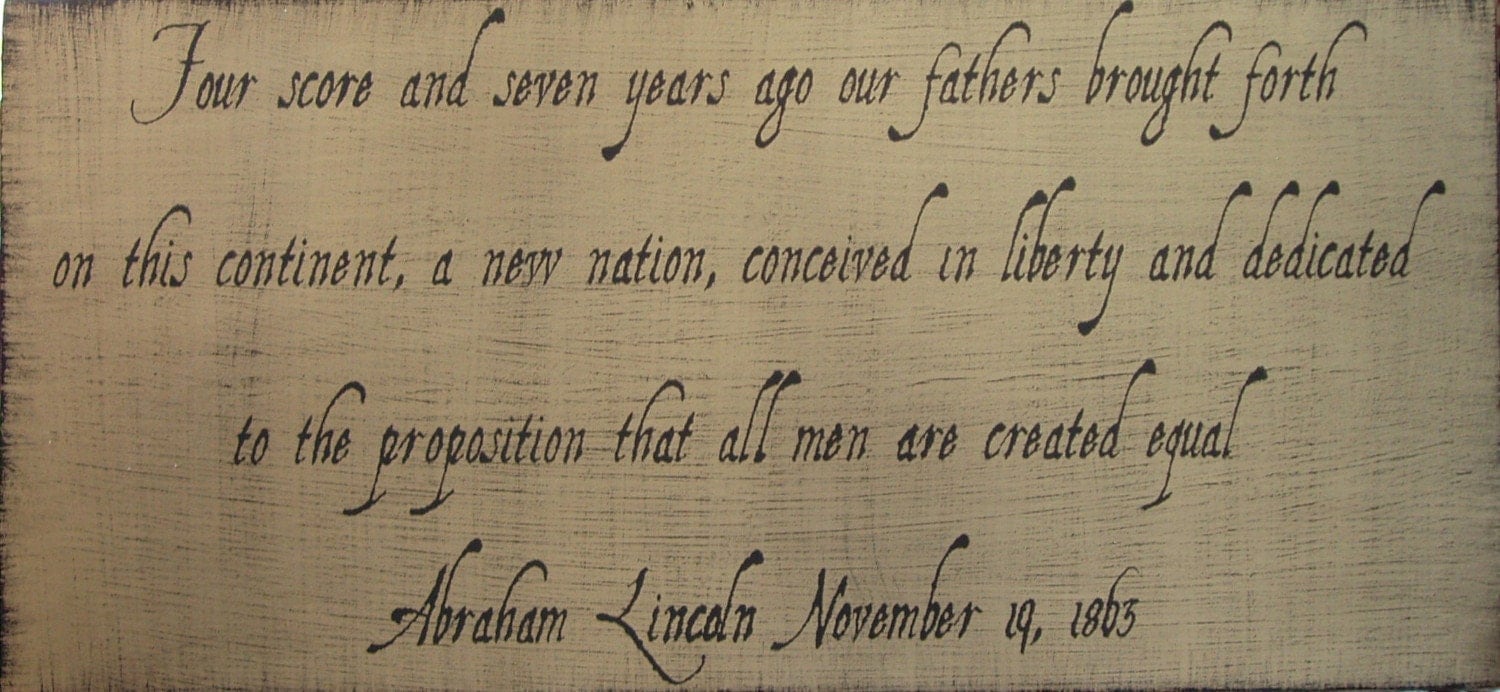 Four score and seven years ago our fathers brought forth
on this continent, a new nation, conceived in liberty and dedicated
to the proposition that all men are created equal
Abraham Lincoln November 19, 1863